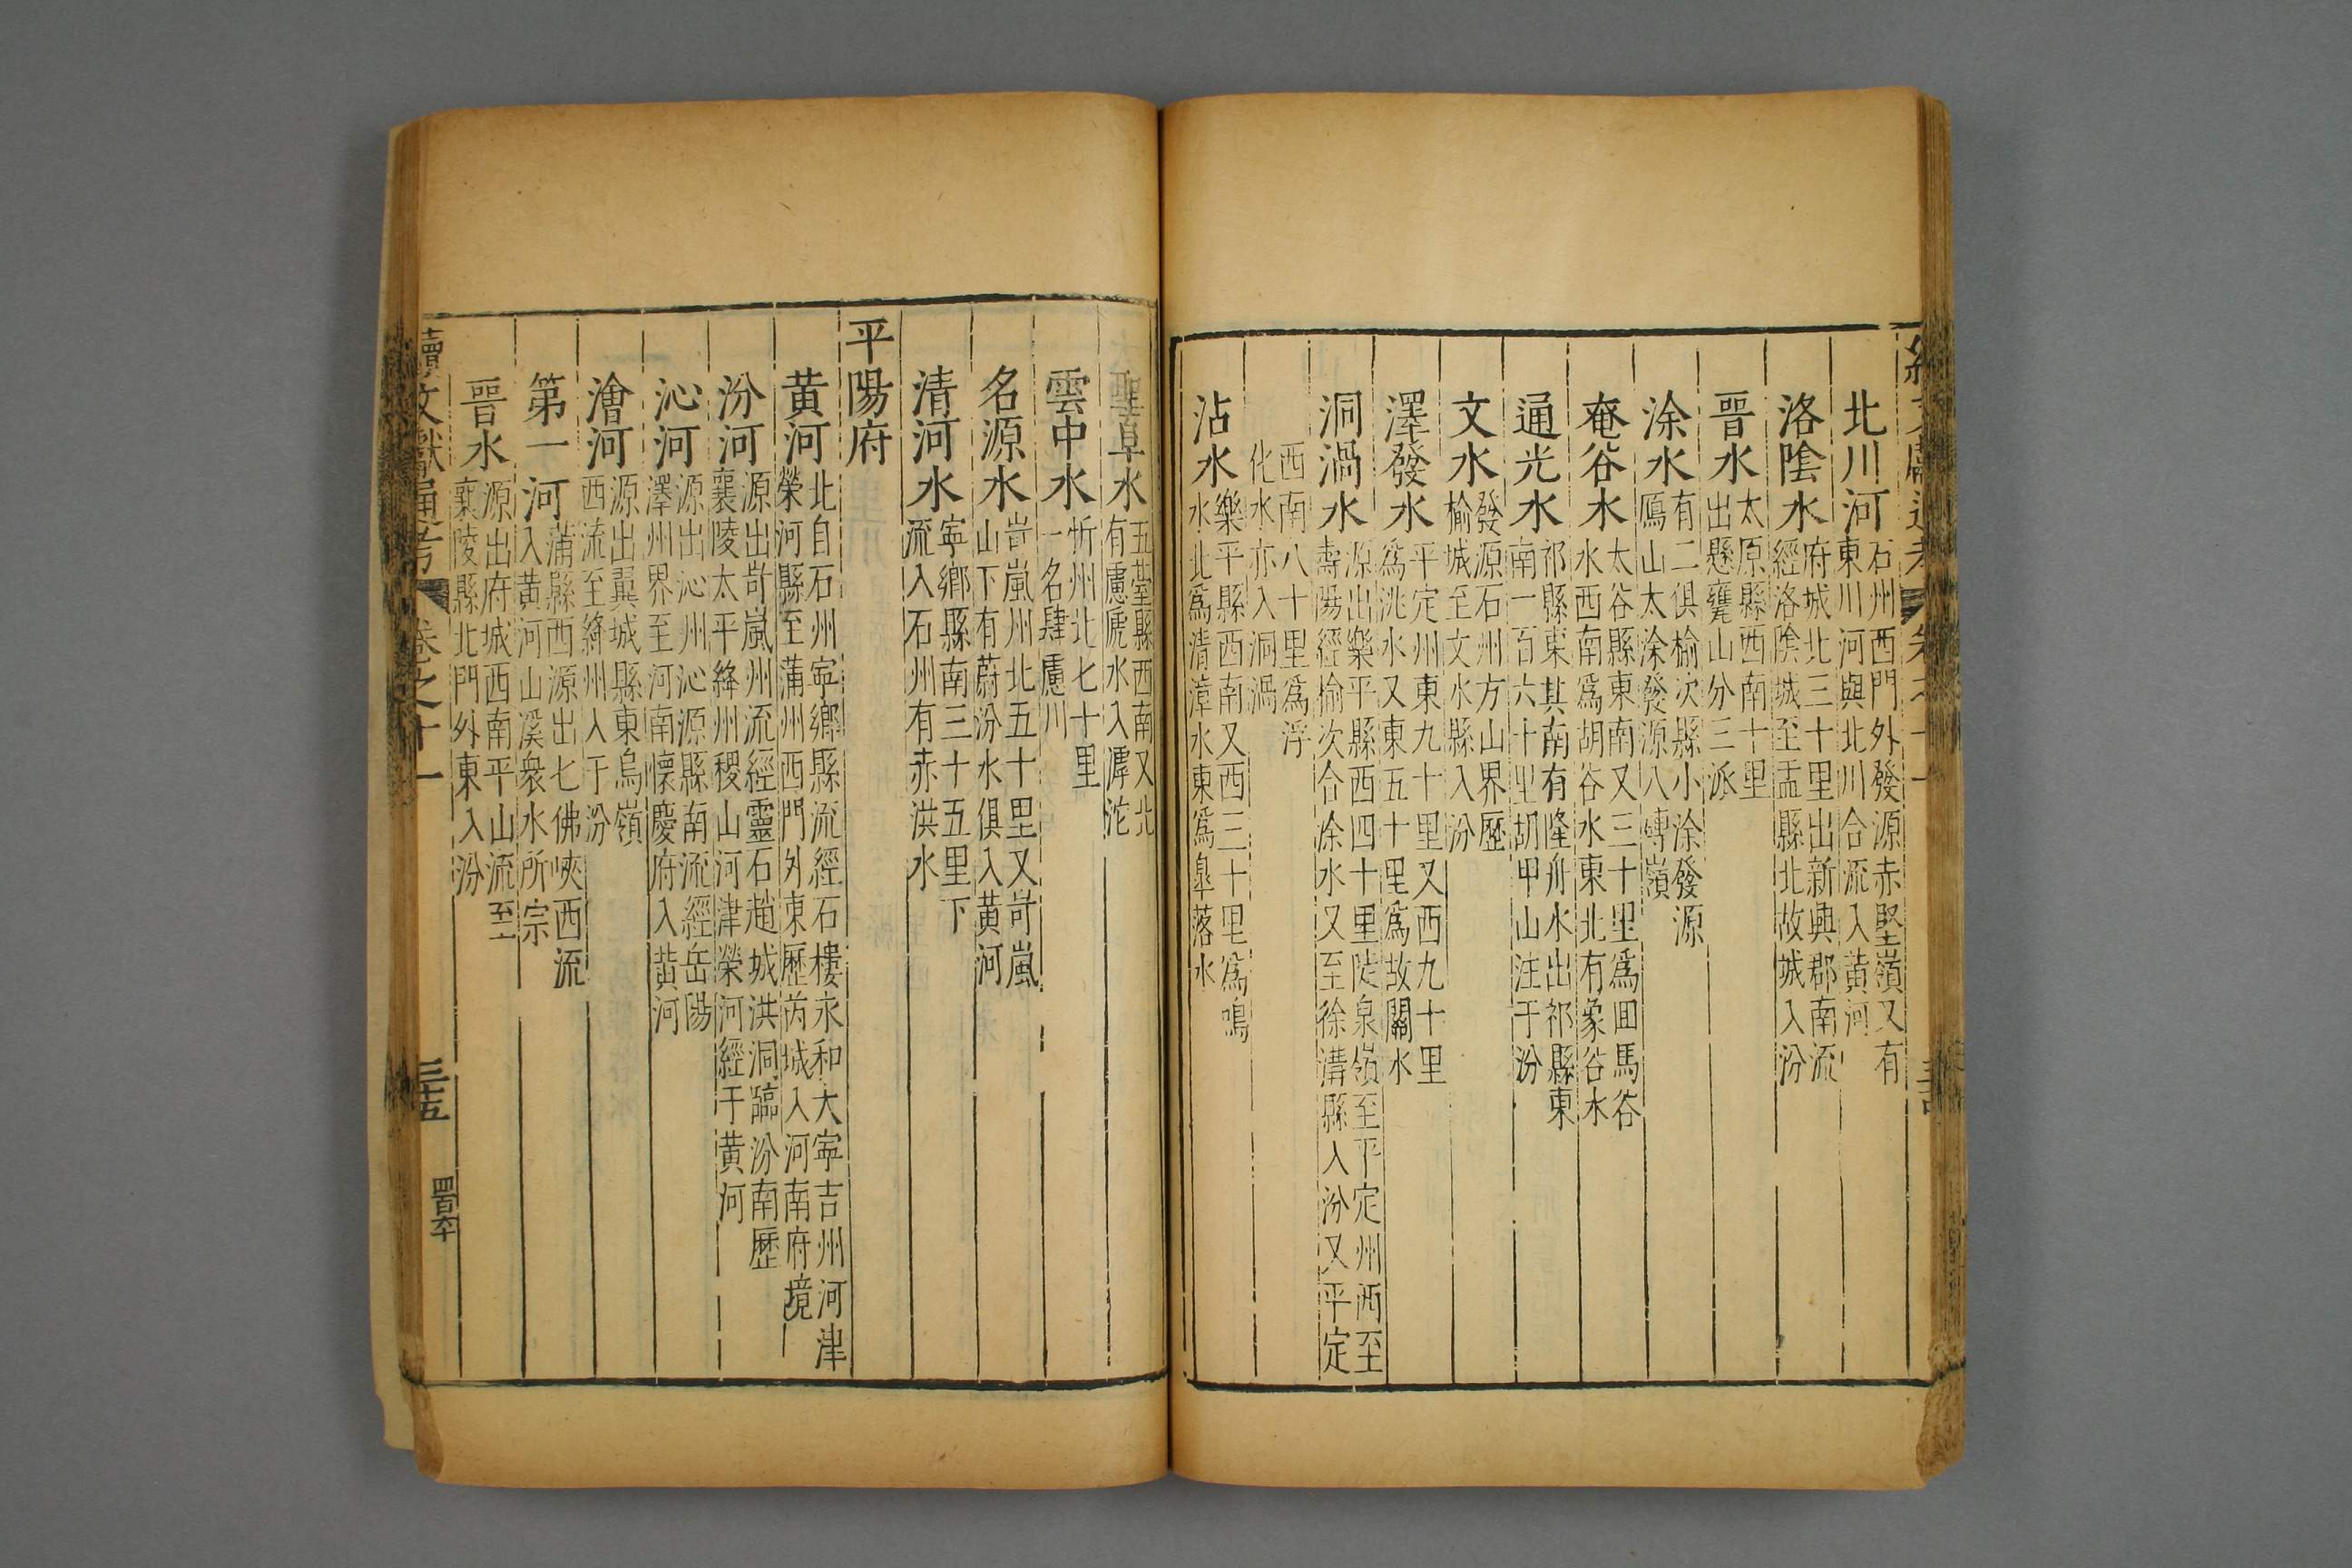 北川河石州西門外發源赤堅嶺又有
東川河與北川合流入黃河
洛陰水府城北三十里出新興郡南流
經洛陰城至盂縣北故城入汾
晉水太原縣西南十里
出懸甕山分三派
涂水有二俱榆次縣小涂發源
鷹山太涂發源八轉嶺
奄谷水太谷縣東南又三十里爲回馬谷
水西南爲胡谷水東北有象谷水
通光水祁縣東其南有隆舟水出祁縣東
南一百六十里胡甲山注于汾
文水發源石州方山界歷
榆城至文水縣入汾
澤發水平定州東九十里又西九十里
爲洮水又東五十里爲故關水
洞渦水源出樂平縣西四十里陡泉嶺至平定州西至
壽陽經榆次合涂水又至徐溝縣入汾又平定
西南八十里爲浮
化水亦入洞渦
沾水樂平縣西南又西三十里爲鳴
水水北爲清漳水東爲皐落水
聖阜水五臺縣西南又北
有慮虒水入滹沱
雲中水忻州北七十里
一名肆慮川
名源水岢嵐州北五十里又岢嵐
山下有蔚汾水俱入黃河
清河水寧鄉縣南三十五里下
流入石州有赤洪水
平陽府
黃河北自石州寧鄉縣流經石樓永和大寧吉州河津
榮河縣至蒲州西門外東歷芮城入河南府境
汾河源出岢嵐州流經靈石趙城洪洞臨汾南歷
襄陵太平絳州稷山河津榮河經于黃河
沁河源出沁州沁源縣南流經岳陽
澤州界至河南懷慶府入黃河
澮河源出翼城縣東烏嶺
西流至絳州入于汾
第一河蒲縣西源出七佛峽西流
入黃河山溪衆水所宗
晉水源出府城西南平山流至
襄陵縣北門外東入汾
續文獻通考 卷之十一 三十五 四百六十